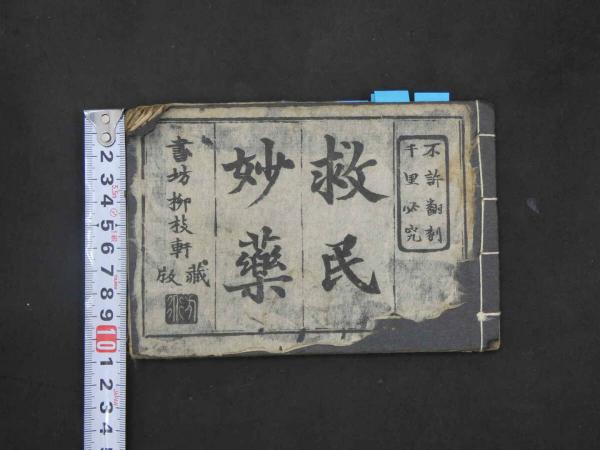 不許翻刻
千里必究
救民
妙藥
書坊柳枝軒藏版
2
3
4
5
6
7
8
9
10
1
2
3
4
5